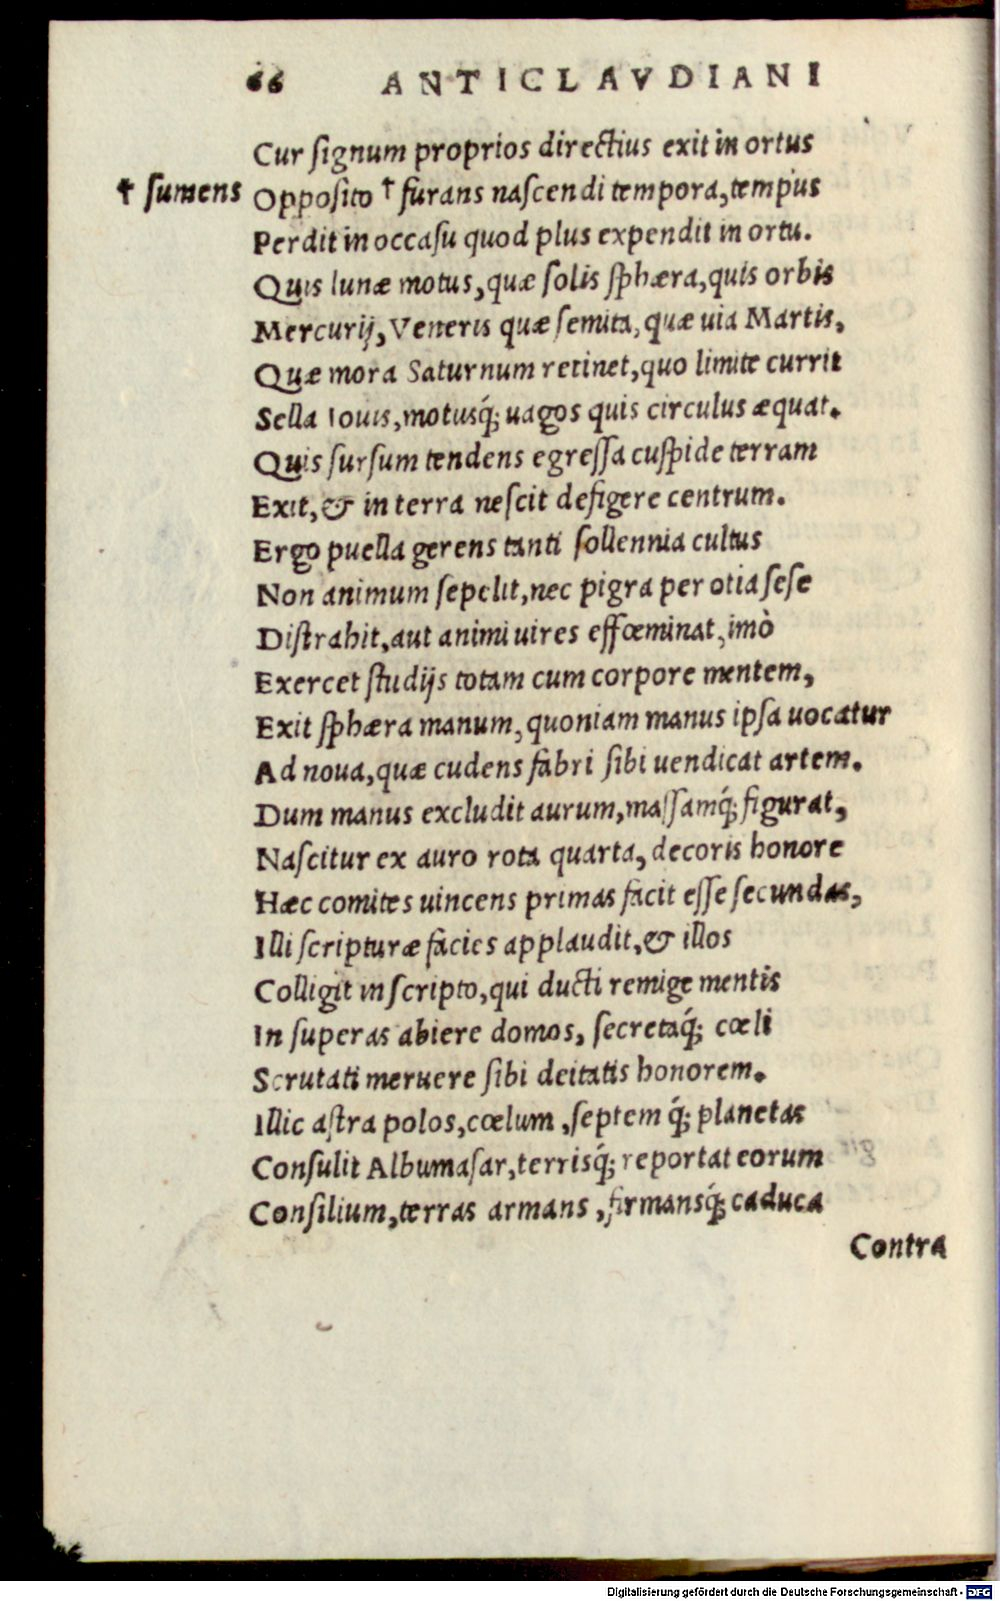 66 ANTICLAVDIANI
Cur ſignum proprios directius exit in ortus
† ſumens Opposito † furans naſcendi tempora, tempus
Perdit in occaſu quod plus expendit in ortu.
Quis lunæ motus, quæ ſolis ſphæra, quis orbis
Mercurij, Veneris quæ ſemita, quæ uia Martis,
Quæ mora Saturnum retinet, quo limite currit
Sella Iouis, motusq́; uagos quis circulus æquat.
Quis ſurſum tendens egreſſa cuſpide terram
Exit, & in terra neſcit defigere centrum.
Ergo puella gerens tanti ſollennia cultus
Non animum ſepelit, nec pigra per otia ſeſe
Diſtrahit, aut animi uires effœminat, imò
Exercet ſtudijs totam cum corpore mentem,
Exit ſphæra manum, quoniam manus ipſa uocatur
Ad noua, quæ cudens fabri ſibi uendicat artem.
Dum manus excludit aurum, maſſamq́; figurat,
Naſcitur ex auro rota quarta, decoris honore
Hæc comites uincens primas facit eſſe ſecundas,
Illi ſcripturæ facies applaudit, & illos
Colligit in ſcripto, qui ducti remige mentis
In ſuperas abiere domos, ſecretaq́; cœli
Scrutati meruere ſibi deitatis honorem.
Illic aſtra polos, cœlum, ſeptem q́; planetas
Conſulit Albumaſar, terrisq́; reportat eorum
Conſilium, terras armans, firmansq́; caduca
Contra
Digitalisierung gefördert durch die Deutsche Forschungsgemeinschaft - DFG